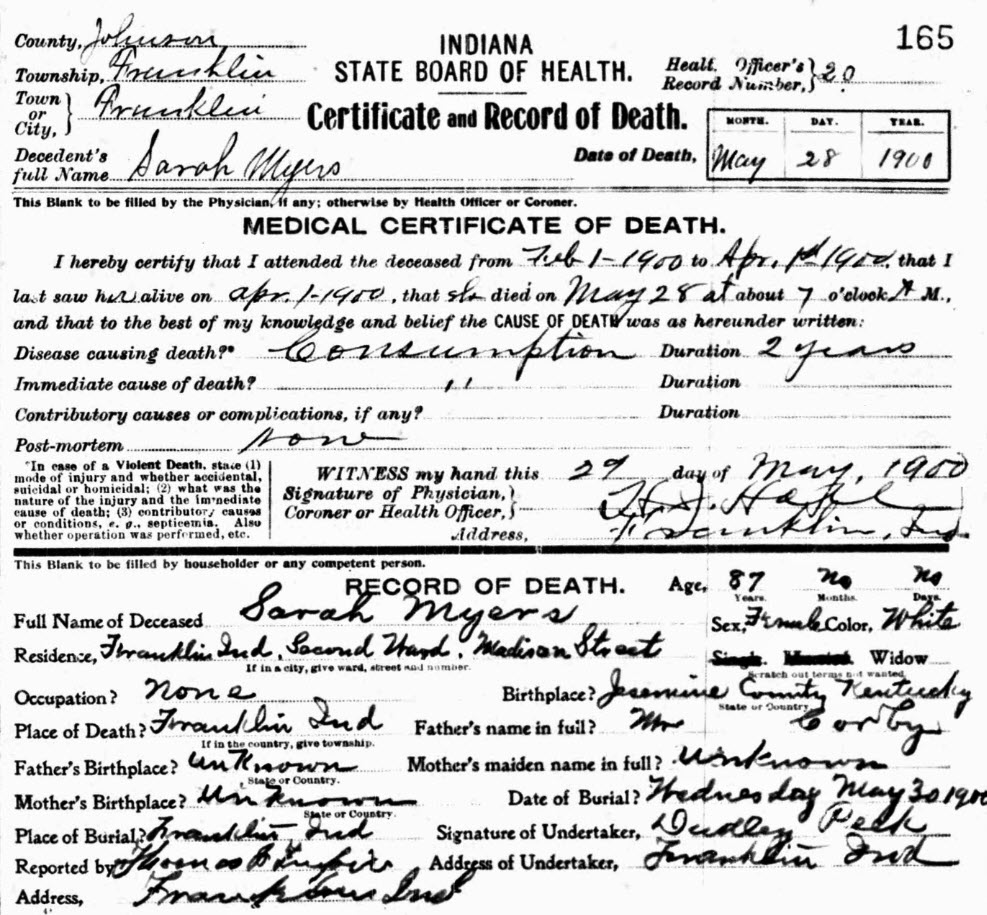 165
County, Johnson
INDIANA
STATE BOARD OF HEALTH.
Township, Franklin
Healt. Officer's Record Number, 20
Town or City, Franklin
Certificate and Record of Death.
MONTH. DAY. YEAR.
Decedent's full Name Sarah Myers
Date of Death, May 28 1900
This Blank to be filled by the Physician, if any; otherwise by Health Officer or Coroner.
MEDICAL CERTIFICATE OF DEATH.
I hereby certify that I attended the deceased from Feb 1-1900 to Apr. 1st 1900, that I
last saw her alive on apr. 1-1900, that she died on May 28 at about 7 o'clock A M.,
and that to the best of my knowledge and belief the CAUSE OF DEATH was as hereunder written:
Disease causing death?* Consumption Duration 2 years
Immediate cause of death? " Duration
Contributory causes or complications, if any? Duration
Post-mortem none
*In case of a Violent Death, state (1)
mode of injury and whether accidental,
suicidal or homicidal; (2) what was the
nature of the injury and the immediate
cause of death; (3) contributory causes
or conditions, e. g., septicemia. Also
whether operation was performed, etc.
WITNESS my hand this 29 day of May, 1900
Signature of Physician,
Coroner or Health Officer,
Address, Franklin, Ind
This Blank to be filled by householder or any competent person.
RECORD OF DEATH.
Age, 87 No No
Years. Months. Days.
Full Name of Deceased Sarah Myers
Sex, Female Color, White
Residence, Franklin Ind, Second Ward, Madison Street
If in a city, give ward, street and number.
Single. Married. Widow
Scratch out terms not wanted.
Occupation? None
Birthplace? Jesemine County Kentucky
State or Country.
Place of Death? Franklin Ind
If in the country, give township.
Father's name in full? Mr Corby
Father's Birthplace? Unknown
State or Country.
Mother's maiden name in full? Unknown
Mother's Birthplace? Unknown
State or Country.
Date of Burial? Wednesday May 30 1900
Place of Burial? Franklin Ind
Signature of Undertaker, Dudley Peek
Reported by Thomas
Address of Undertaker, Franklin Ind
Address, Franklin Ind